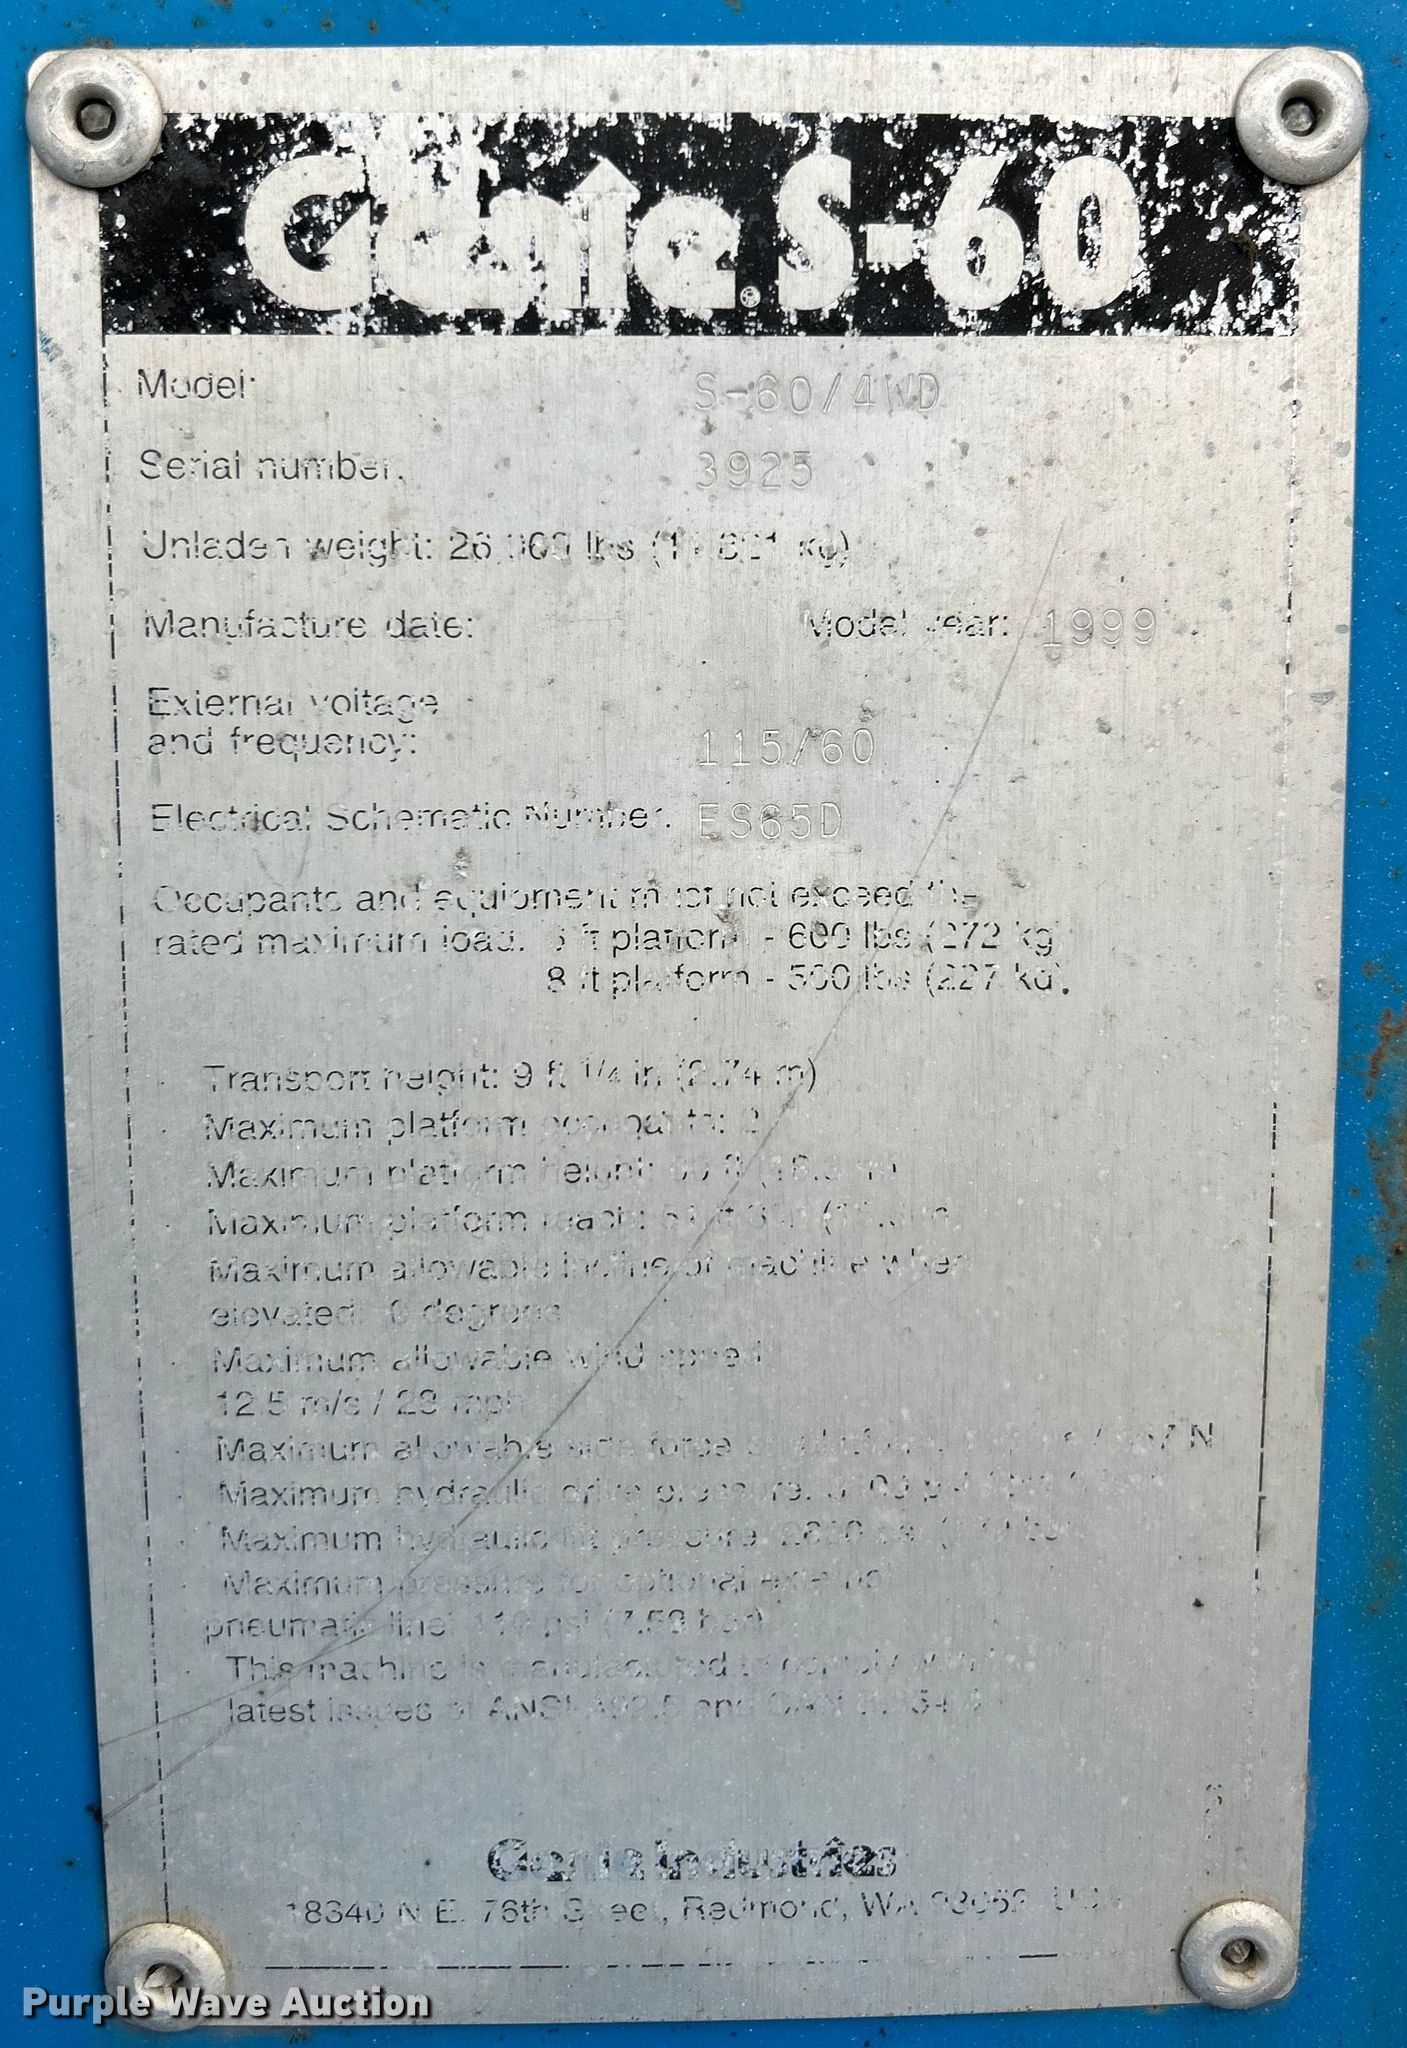 Genie S-60
Model: S-60/4WD
Serial number: 3925
Unladen weight: lbs kg)
Manufacture date: Model year: 1999
External voltage
and frequency: 115/60
Electrical Schematic Number: ES65D
Occupants and equipment must not exceed the
rated maximum load: ft platform - 600 lbs (272 kg)
8 ft platform - 500 lbs (227 kg).
Transport height: 9 ft 1/4 in (2.74 m)
Maximum platform occupants: 2
Maximum platform height: 60 ft
Maximum platform reach:
Maximum allowable incline of machine when
elevated: 0 degrees
Maximum allowable wind speed:
12.5 m/s / 28 mph
Maximum allowable side force N
Maximum hydraulic drive pressure:
Maximum hydraulic lift pressure:
Maximum pressure for optional external
pneumatic line: 110 psi (7.58 bar)
This machine is manufactured to comply with
latest issues of ANSI A92.5 and
Genie Industries
18340 N.E. 76th Street, Redmond, WA
Purple Wave Auction